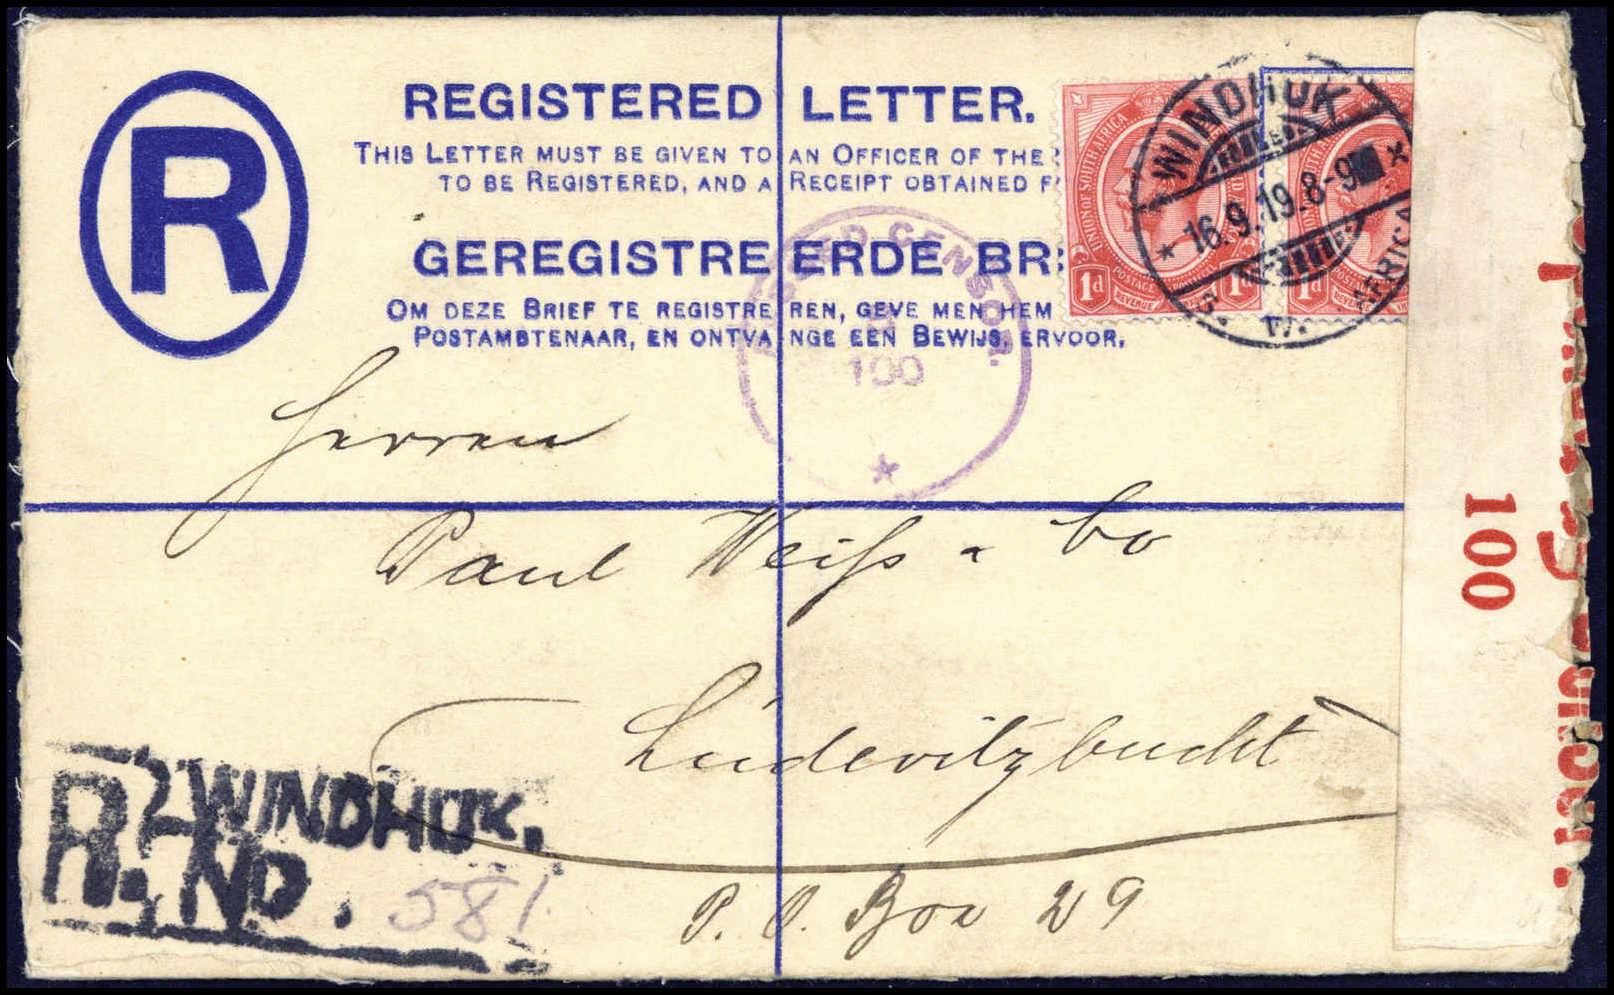 R
REGISTERED LETTER.
THIS LETTER MUST BE GIVEN TO AN OFFICER OF THE
TO BE REGISTERED, AND A RECEIPT OBTAINED F
GEREGISTREERDE BR
OM DEZE BRIEF TE REGISTREREN, GEVE MEN HEM
POSTAMBTENAAR, EN ONTVANGE EEN BEWIJS, ERVOOR.
UNION OF SOUTH AFRICA
1d 1d
POSTAGE
REVENUE
1d
POSTAGE
REVENUE
WINDHUK
16.9.19.8-9
S. W. AFRICA
CENSOR.
100
Herren
Paul Weiß & Co
Lüderitzbucht
P. O. Box 29
R. WINDHUK.
No. 581
100